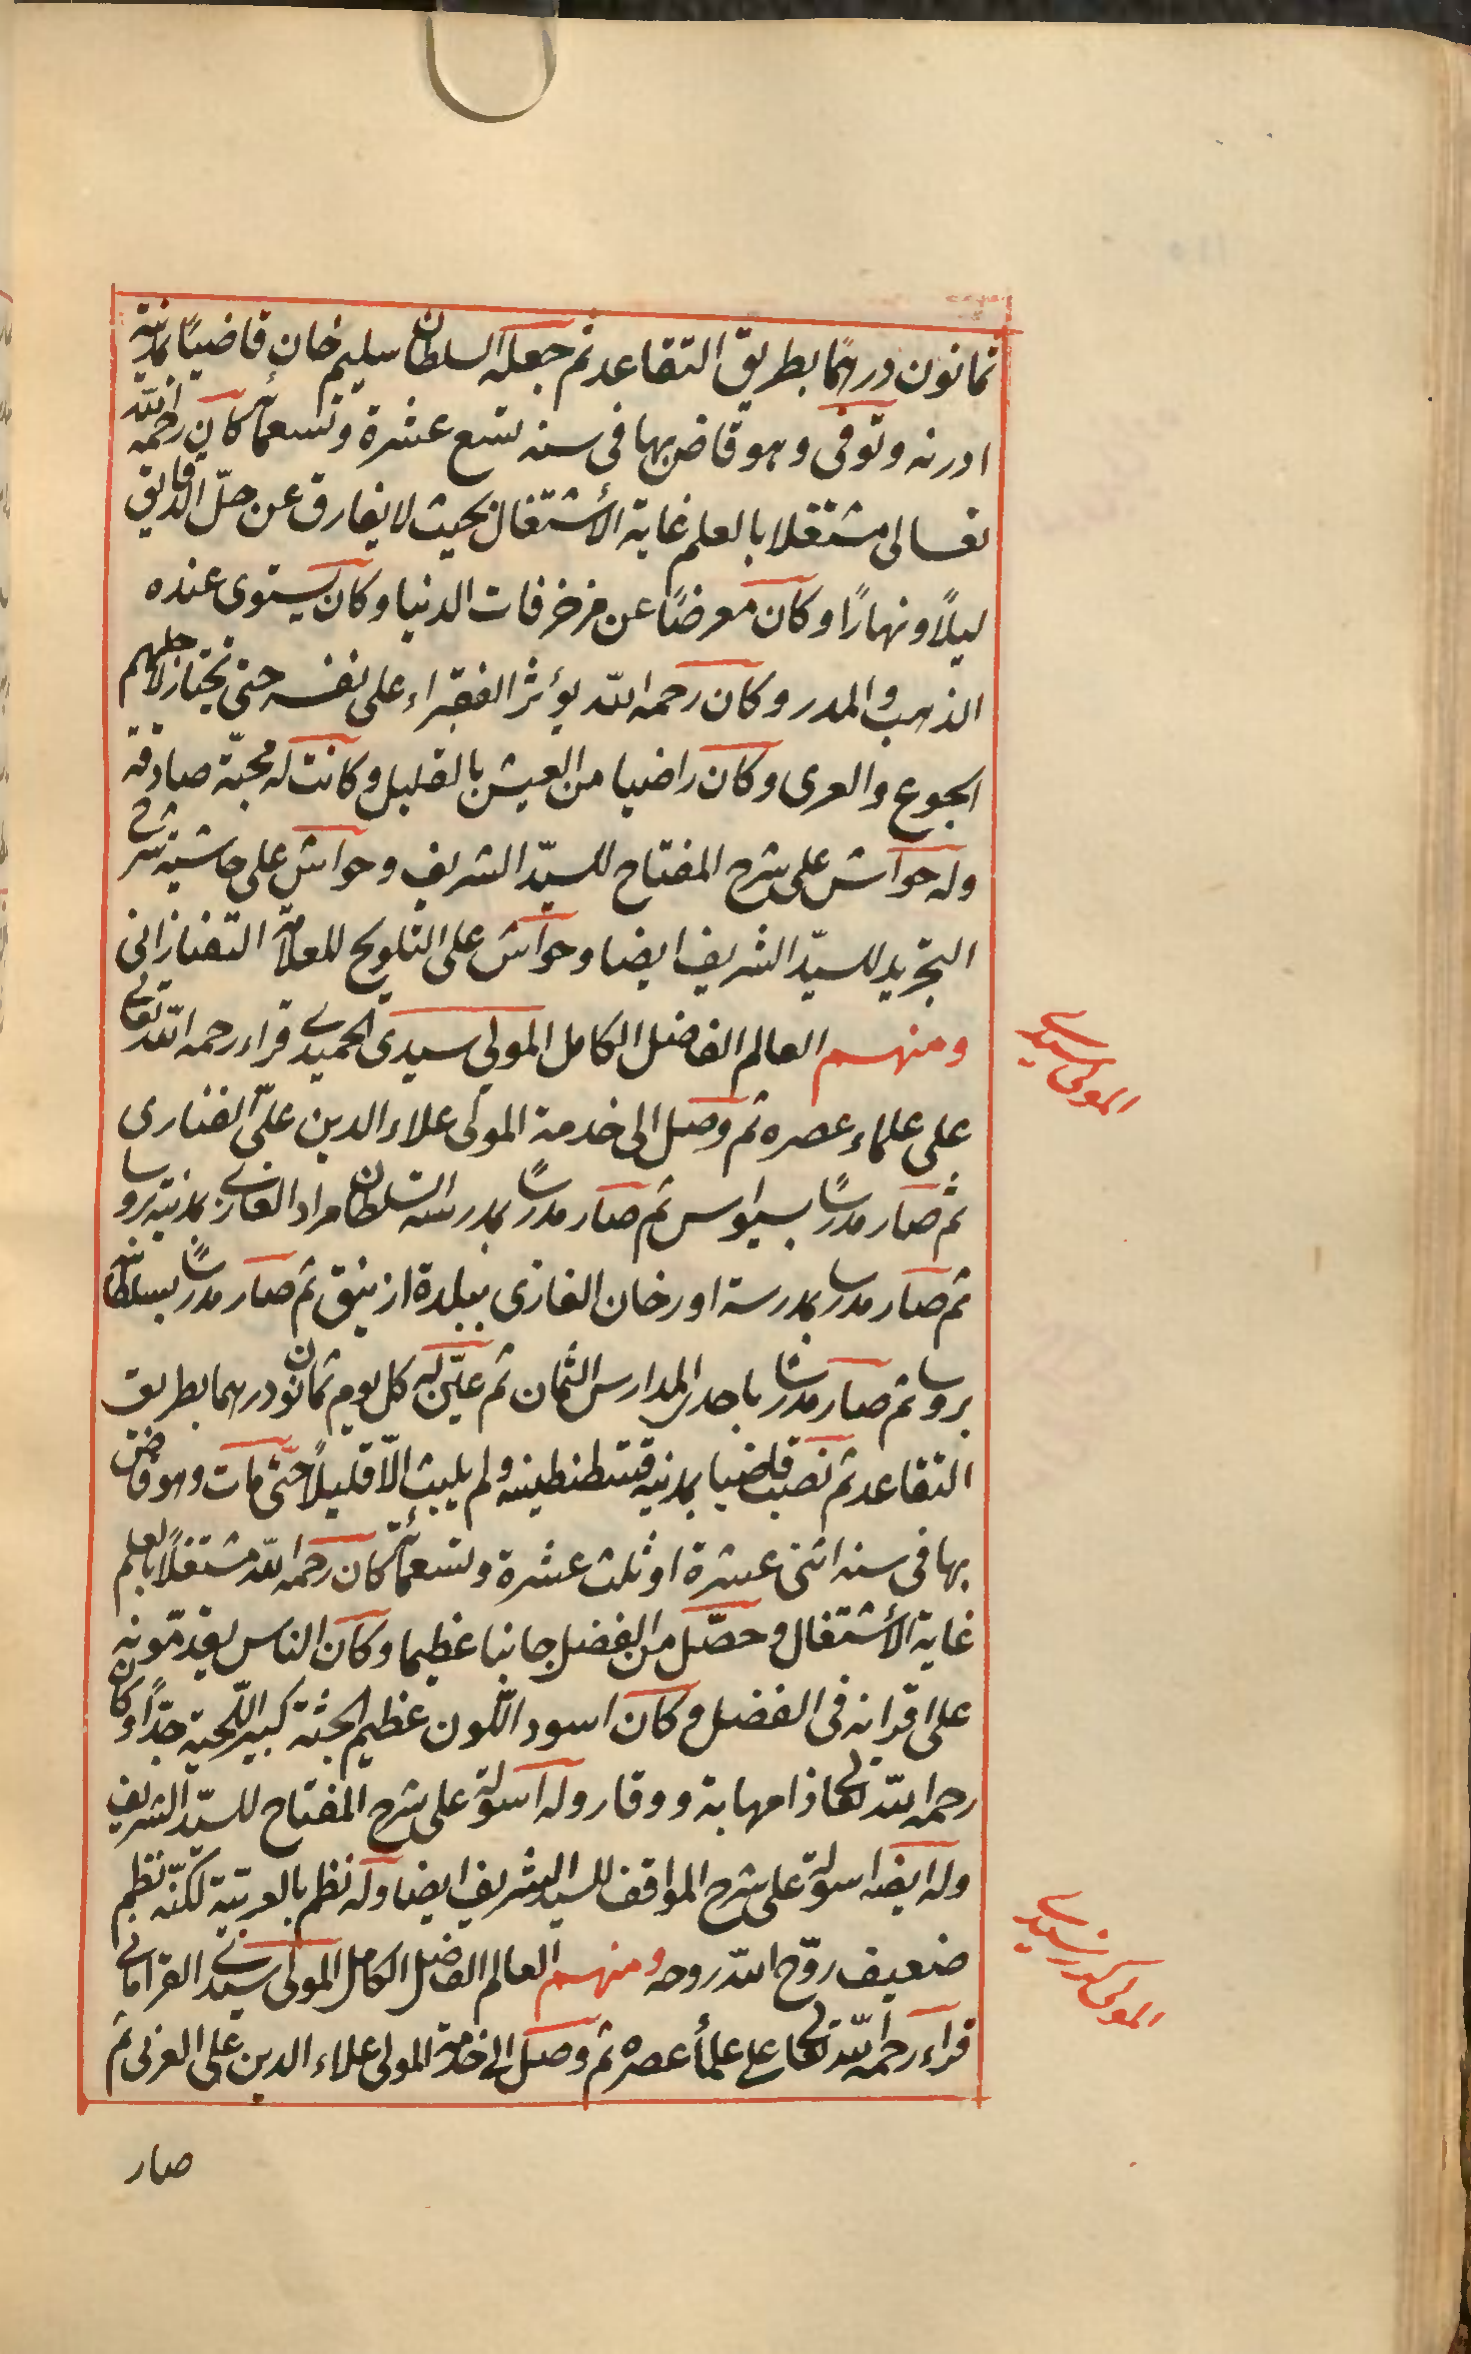 ثمانون درهما بطريق التقاعد ثم جعله السلطان سليم خان قاضيا بمدينة
ادرنه وتوفى وهو قاض بها فى سنه تسع عشرة وتسعمائة كان رحمه الله
تعالى مشتغلا بالعلم غاية الأشتغال بحيث لا يفارق عن حلّ الدقايق
ليلاً ونهارًا وكان معرضًا عن مزخرفات الدنيا وكان يستوى عنده
الذهب والمدر وكان رحمه الله يؤثر الفقراء على نفسه حتى يختار لاجلهم
الجوع والعرى وكان راضيا من العيش بالقليل وكانت له محبّة صادقة
وله حواش على شرح المفتاح للسيّد الشريف وحواش على حاشية شرح
التجريد للسيّد الشريف ايضا وحواش على التلويح للعلامة التفتازانى
ومنهم العالم الفاضل الكامل المولى سيدى الحميدى قراء رحمه الله تعالى
على علماء عصره ثم وصل الى خدمة المولى علاء الدين علىّ الفنارى
ثم صار مدرسًا بسيواس ثم صار مدرسًا بمدرسة السلطان مراد الغازى بمدينة بروسا
ثم صار مدرسا بمدرسة اورخان الغازى ببلدة ازنيق ثم صار مدرسًا بسلطانيه
بروسا ثم صار مدرسًا باحدى المدارس الثمان ثم عيّن له كل يوم ثمانون درهما بطريق
التقاعد ثم نصب قاضيا بمدينة قسطنطينه ولم يلبث الّا قليلاً حتّى مات وهو قاض
بها فى سنه اثنى عشرة او ثلث عشرة وتسعمائة كان رحمه الله مشتغلاً بالعلم
غاية الأشتغال وحصّل من الفضل جانبا عظيما وكان الناس يقدّمونه
على اقرانه فى الفضل وكان اسود اللّون عظيم الجثة كبير اللّحية جدّاً وكان
رحمه الله تعالى ذا مهابة ووقار وله اسولة على شرح المفتاح للسيّد الشريف
وله ايضا اسولة على شرح المواقف للسيد الشريف ايضا وله نظم بالعربيّة لكنّه نظم
ضعيف روّح الله روحه ومنهم العالم الفاضل الكامل المولى سيدى القرامانى
قراء رحمه الله تعالى على علمأ عصره ثم وصل الى خدمة المولى علاء الدين على العربى ثم
صار
المولى سيدى
المولى سيدى